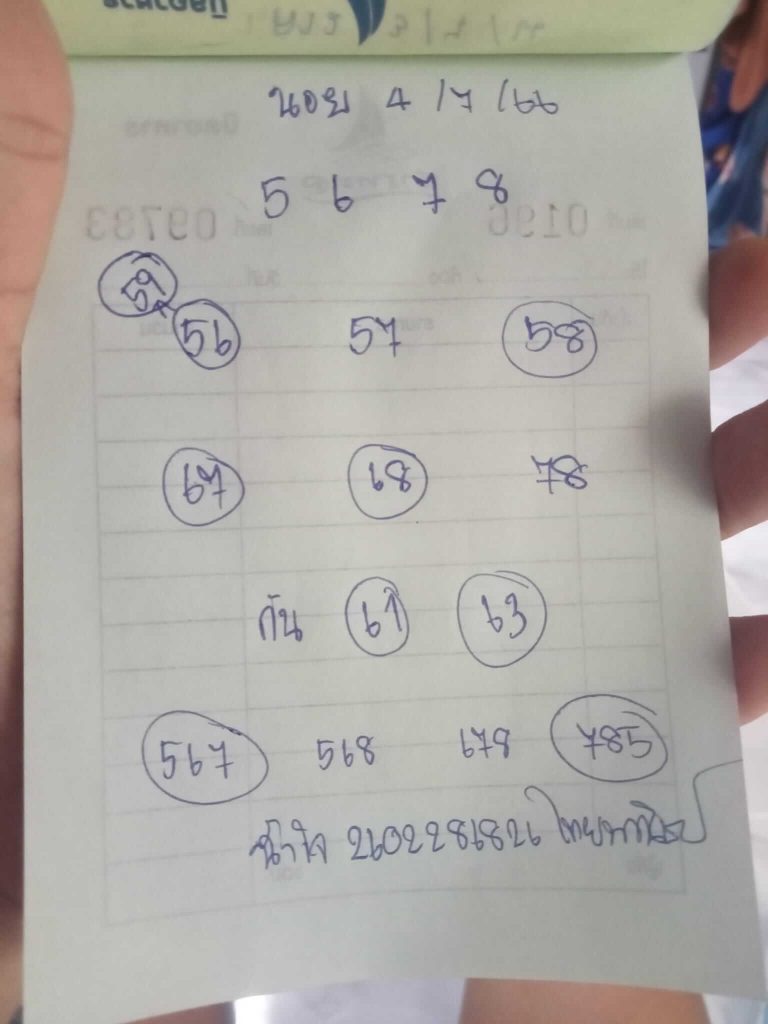 นอย 4 /7 /66
5 6 7 8
59
56 57 58
67 68 78
กัน 61 63
567 568 678 785
น้ำใจ 2602286826 ไทยพาณิชย์